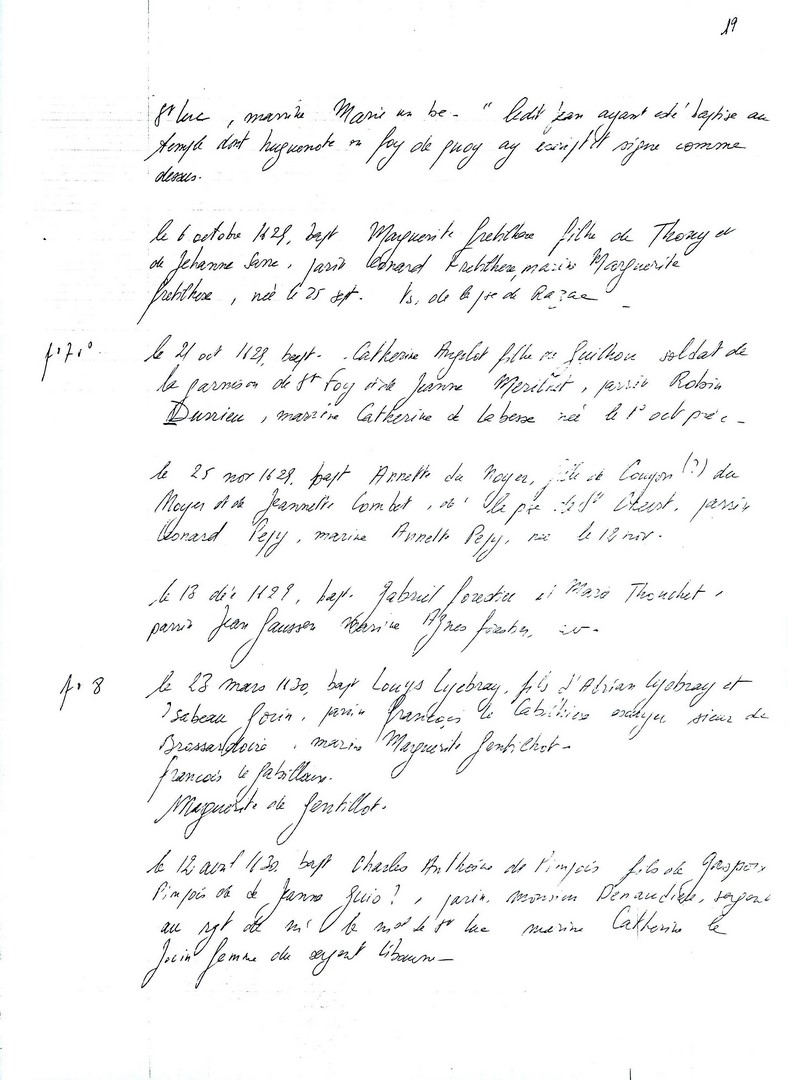 19
St Luc, marrine Marie un be- " ledit jean ayant esté baptise au
temple dont huguenote en foy de quoy ay escript et signe comme
dessus.
le 6 octobre 1629, bapt Marguerite frebthere filhe de Thony et
de Jehanne Sane, parin Léonard Frebthere, marine Marguerite
frebthere, née le 25 spt. Ts. de la pse de Razac
f° 7 r° le 21 oct 1629, bapt. Catherine Angelot filhe de Guilhou soldat de
la garnison de St Foy et de Jeanne Merilhot, parrin Robin
Durrieu, marrine Catherine de Labesse née le 1° oct préc-
le 25 nov 1629, bapt Annette du Noyer, fille de Couyon (?) du
Noyer et de Jeannette Combet, de la pse, parrin
Léonard Pejy, marine Annette Pejy, née le 12 nov.
le 13 déc 1629, bap. Gabriel forestier et Marie Thouchet,
parrin Jean Gaussen marine Agnes
f° 8 le 23 mars 1630, bapt Louys Lyebray, fils d'Adrian Lyebray et
Isabeau Gorin, parrin françois le escuyer sieur de
Brossardoire, marine Marguerite Gentilhot-
françois le
Marguerite de Gentillot.
le 12 avril 1630 bapt Charles Anthoine de Pimpois fils de
Pimpois et de Janne Guio?, parin, monsieur Denaudière, sergent
au rgt de mr le mal de St Luc marine Catherine le
femme du sergent Libaurn-